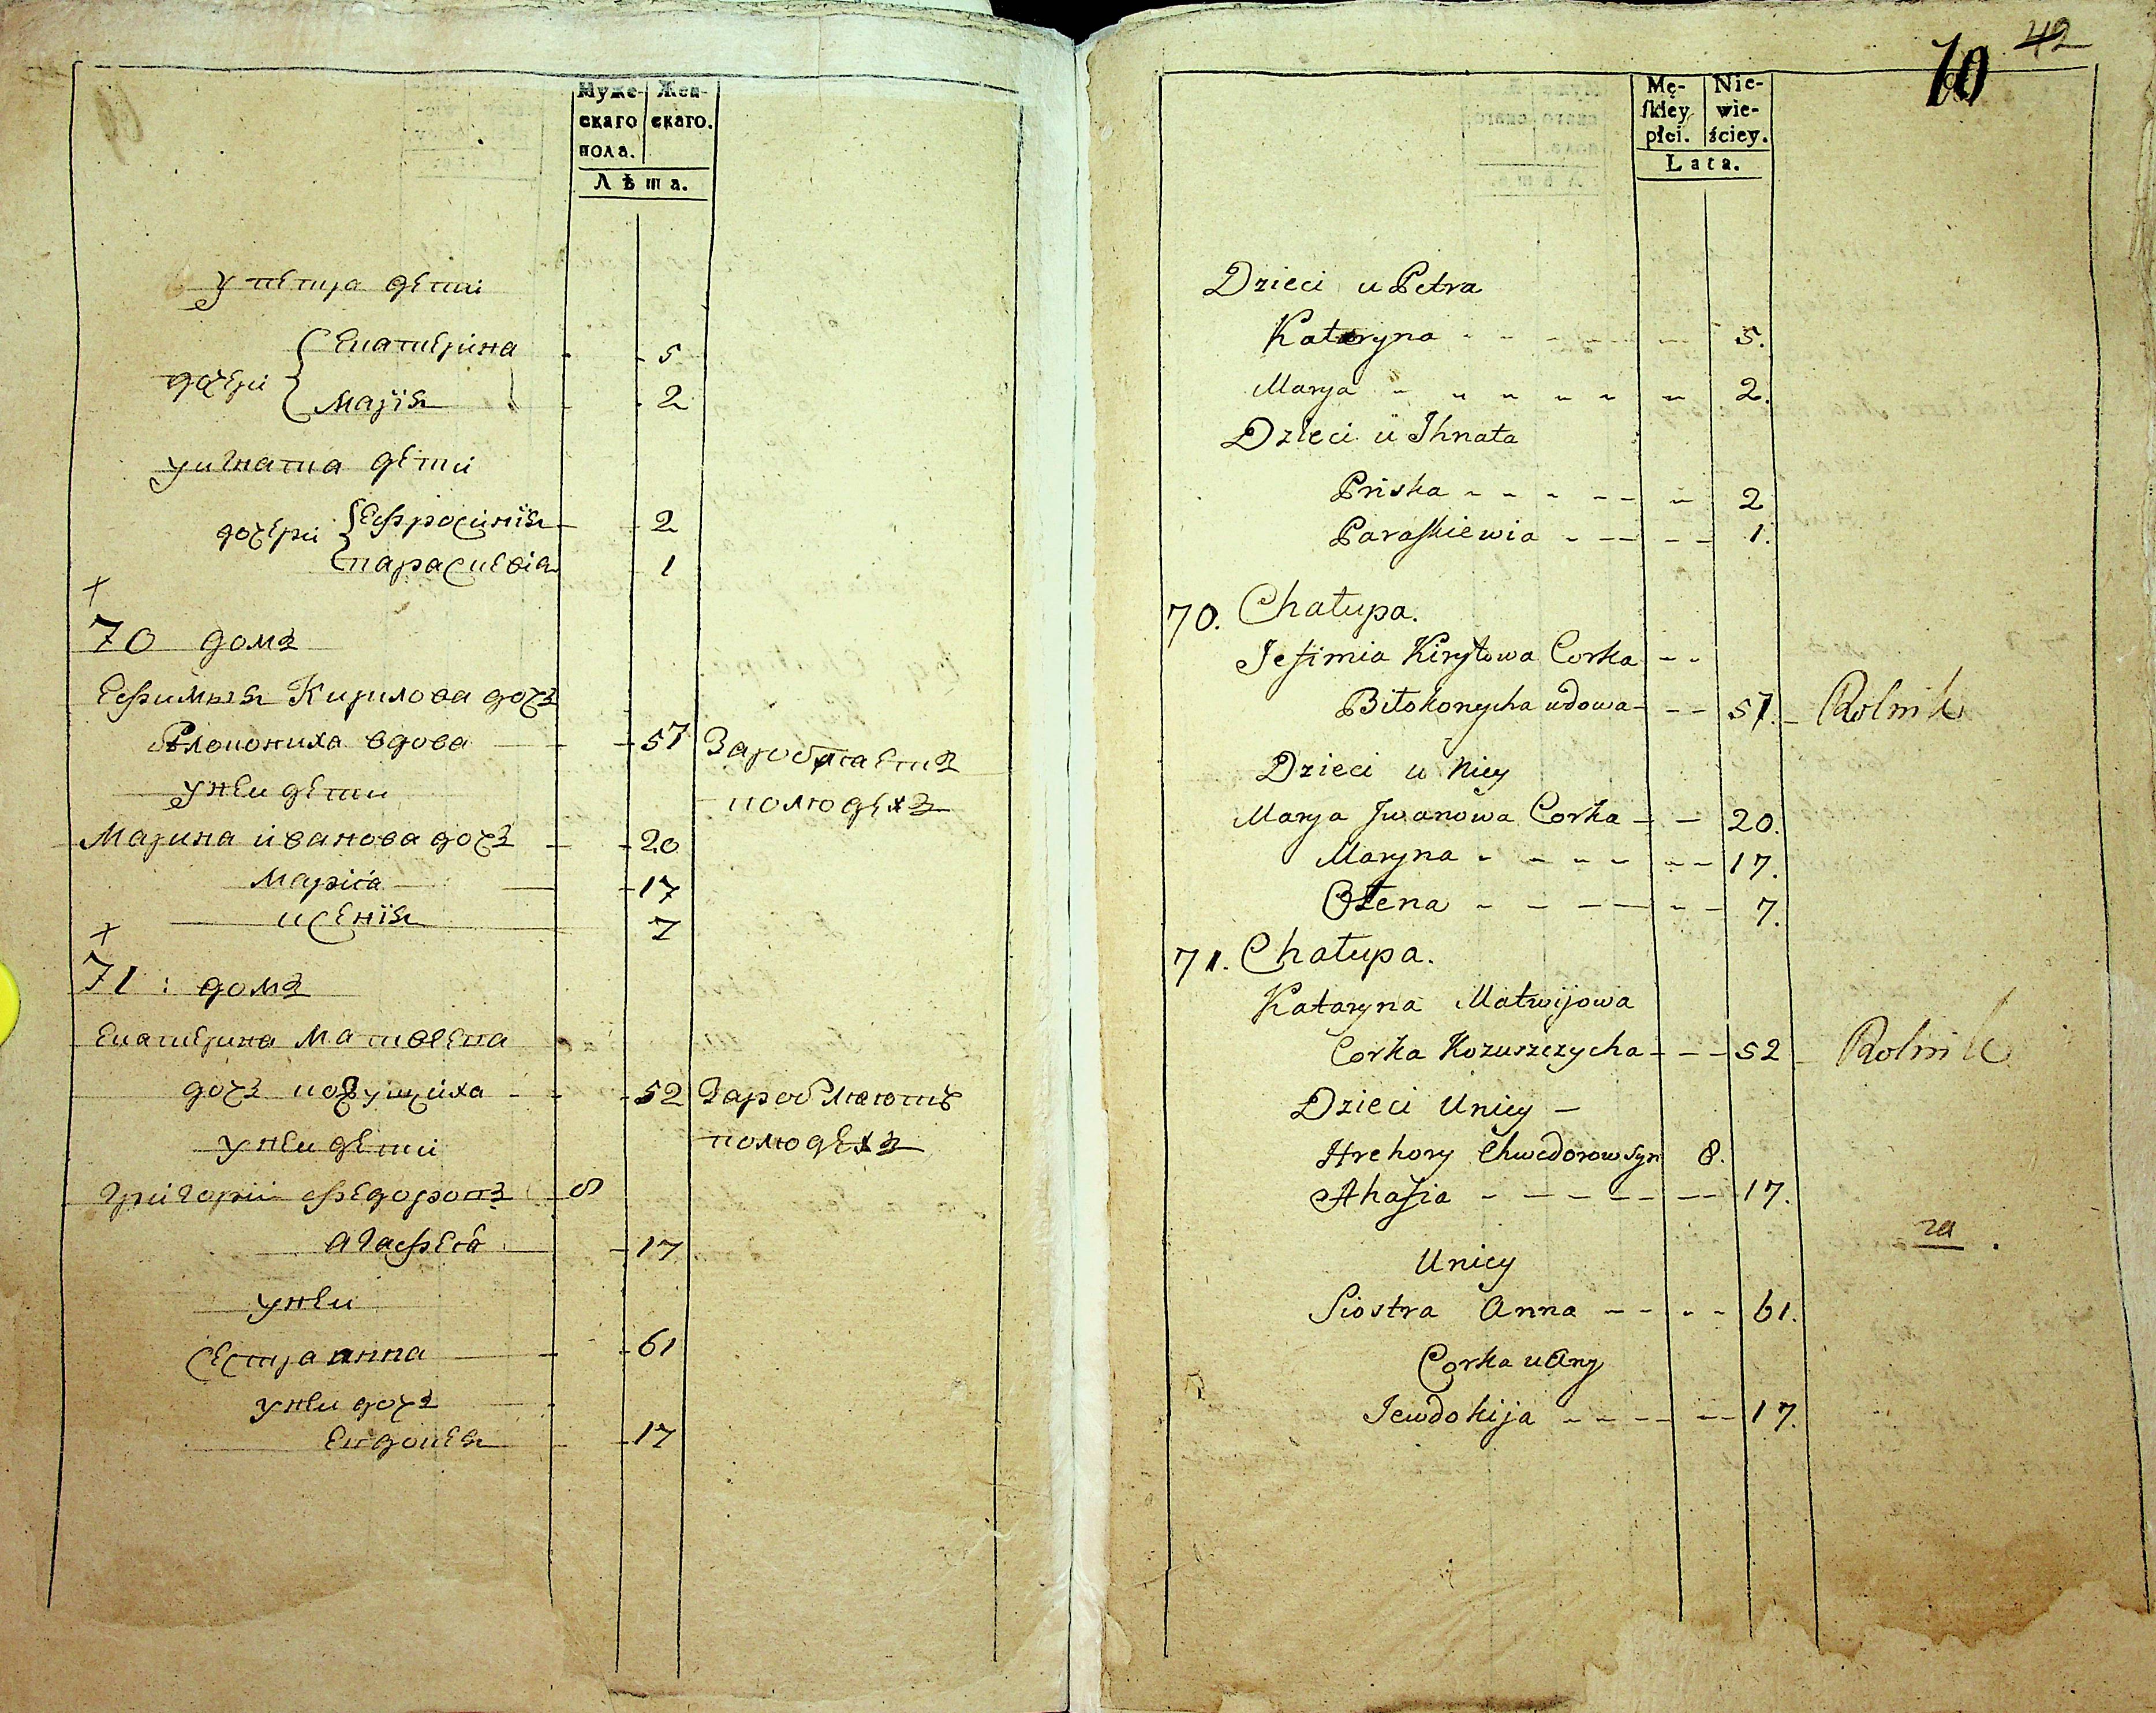 Муже-
скаго
пола.
Жен-
скаго.
Лѣта.
у петра дети
дочери
Екатерина 5
Марія 2
у игната дети
дочери
Ефросинія 2
параскевіа 1
70 домъ
Ефимия Кирилова дочъ
вдова 57 Заробляетъ
у неи дети
по людехъ
Марина иванова дочъ 20
Мариа 17
ксенія 7
71: домъ
Екатерина Матвеева
дочъ кожущиха 52 Зароблюютъ
у неи дети
по людехъ
Григории федоровъ 8
Агафеа 17
у неи
сестра анна 61
у неи дочъ
Евдокея 17
42
70
Mę-
ſkiey
płci.
Nie-
wie-
ściey.
Lata.
Dzieci u Petra
Kataryna 5.
Marya 2.
Dzieci u Ihnata
Priska 2
Paraſkiewia 1.
70. Chałupa.
Jefimia Kiryłowa Corka
Biłokonycha udowa 57. Rolnik
Dzieci u Niey
Marya Jwanowa Corka 20.
Maryna 17.
Ołena 7.
71. Chałupa.
Kataryna Matwijowa
Corka Kozuszczycha 52 Rolnik
Dzieci Uniey
Hrehory Chwedorow Syn 8.
Ahafia 17.
Uniey
Siostra Anna 61.
Corka u Any
Jewdokija 17.